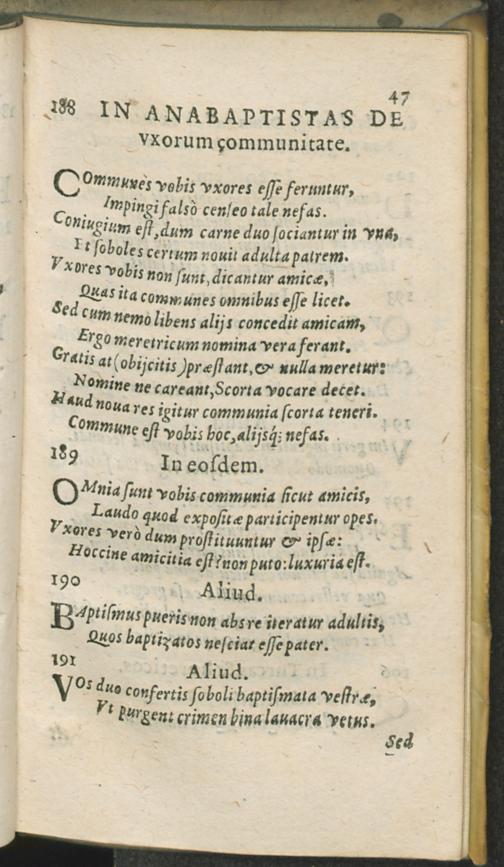 47
188 IN ANABAPTISTAS DE
vxorum communitate.
COmmunes vobis vxores esse feruntur,
Impingi falsò censeo tale nefas.
Coniugium est, dum carne duo sociantur in vna,
Et soboles certum nouit adulta patrem.
Vxores vobis non sunt, dicantur amicæ,
Quas ita communes omnibus esse licet.
Sed cum nemo libens alijs concedit amicam,
Ergo meretricum nomina vera ferant.
Gratis at (obijcitis) præstant, & nulla meretur:
Nomine ne careant, Scorta vocare decet.
Haud noua res igitur communia scorta teneri.
Commune est vobis hoc, alijsq́; nefas.
189 In eosdem.
OMnia sunt vobis communia sicut amicis,
Laudo quod expositæ participentur opes.
Vxores verò dum prostituuntur & ipsæ:
Hoccine amicitia est? non puto: luxuria est.
190 Aliud.
BAptismus pueris non abs re iteratur adultis,
Quos baptizatos nesciat esse pater.
191 Aliud.
VOs duo confertis soboli baptismata vestræ,
Vt purgent crimen bina lauacra vetus.
Sed